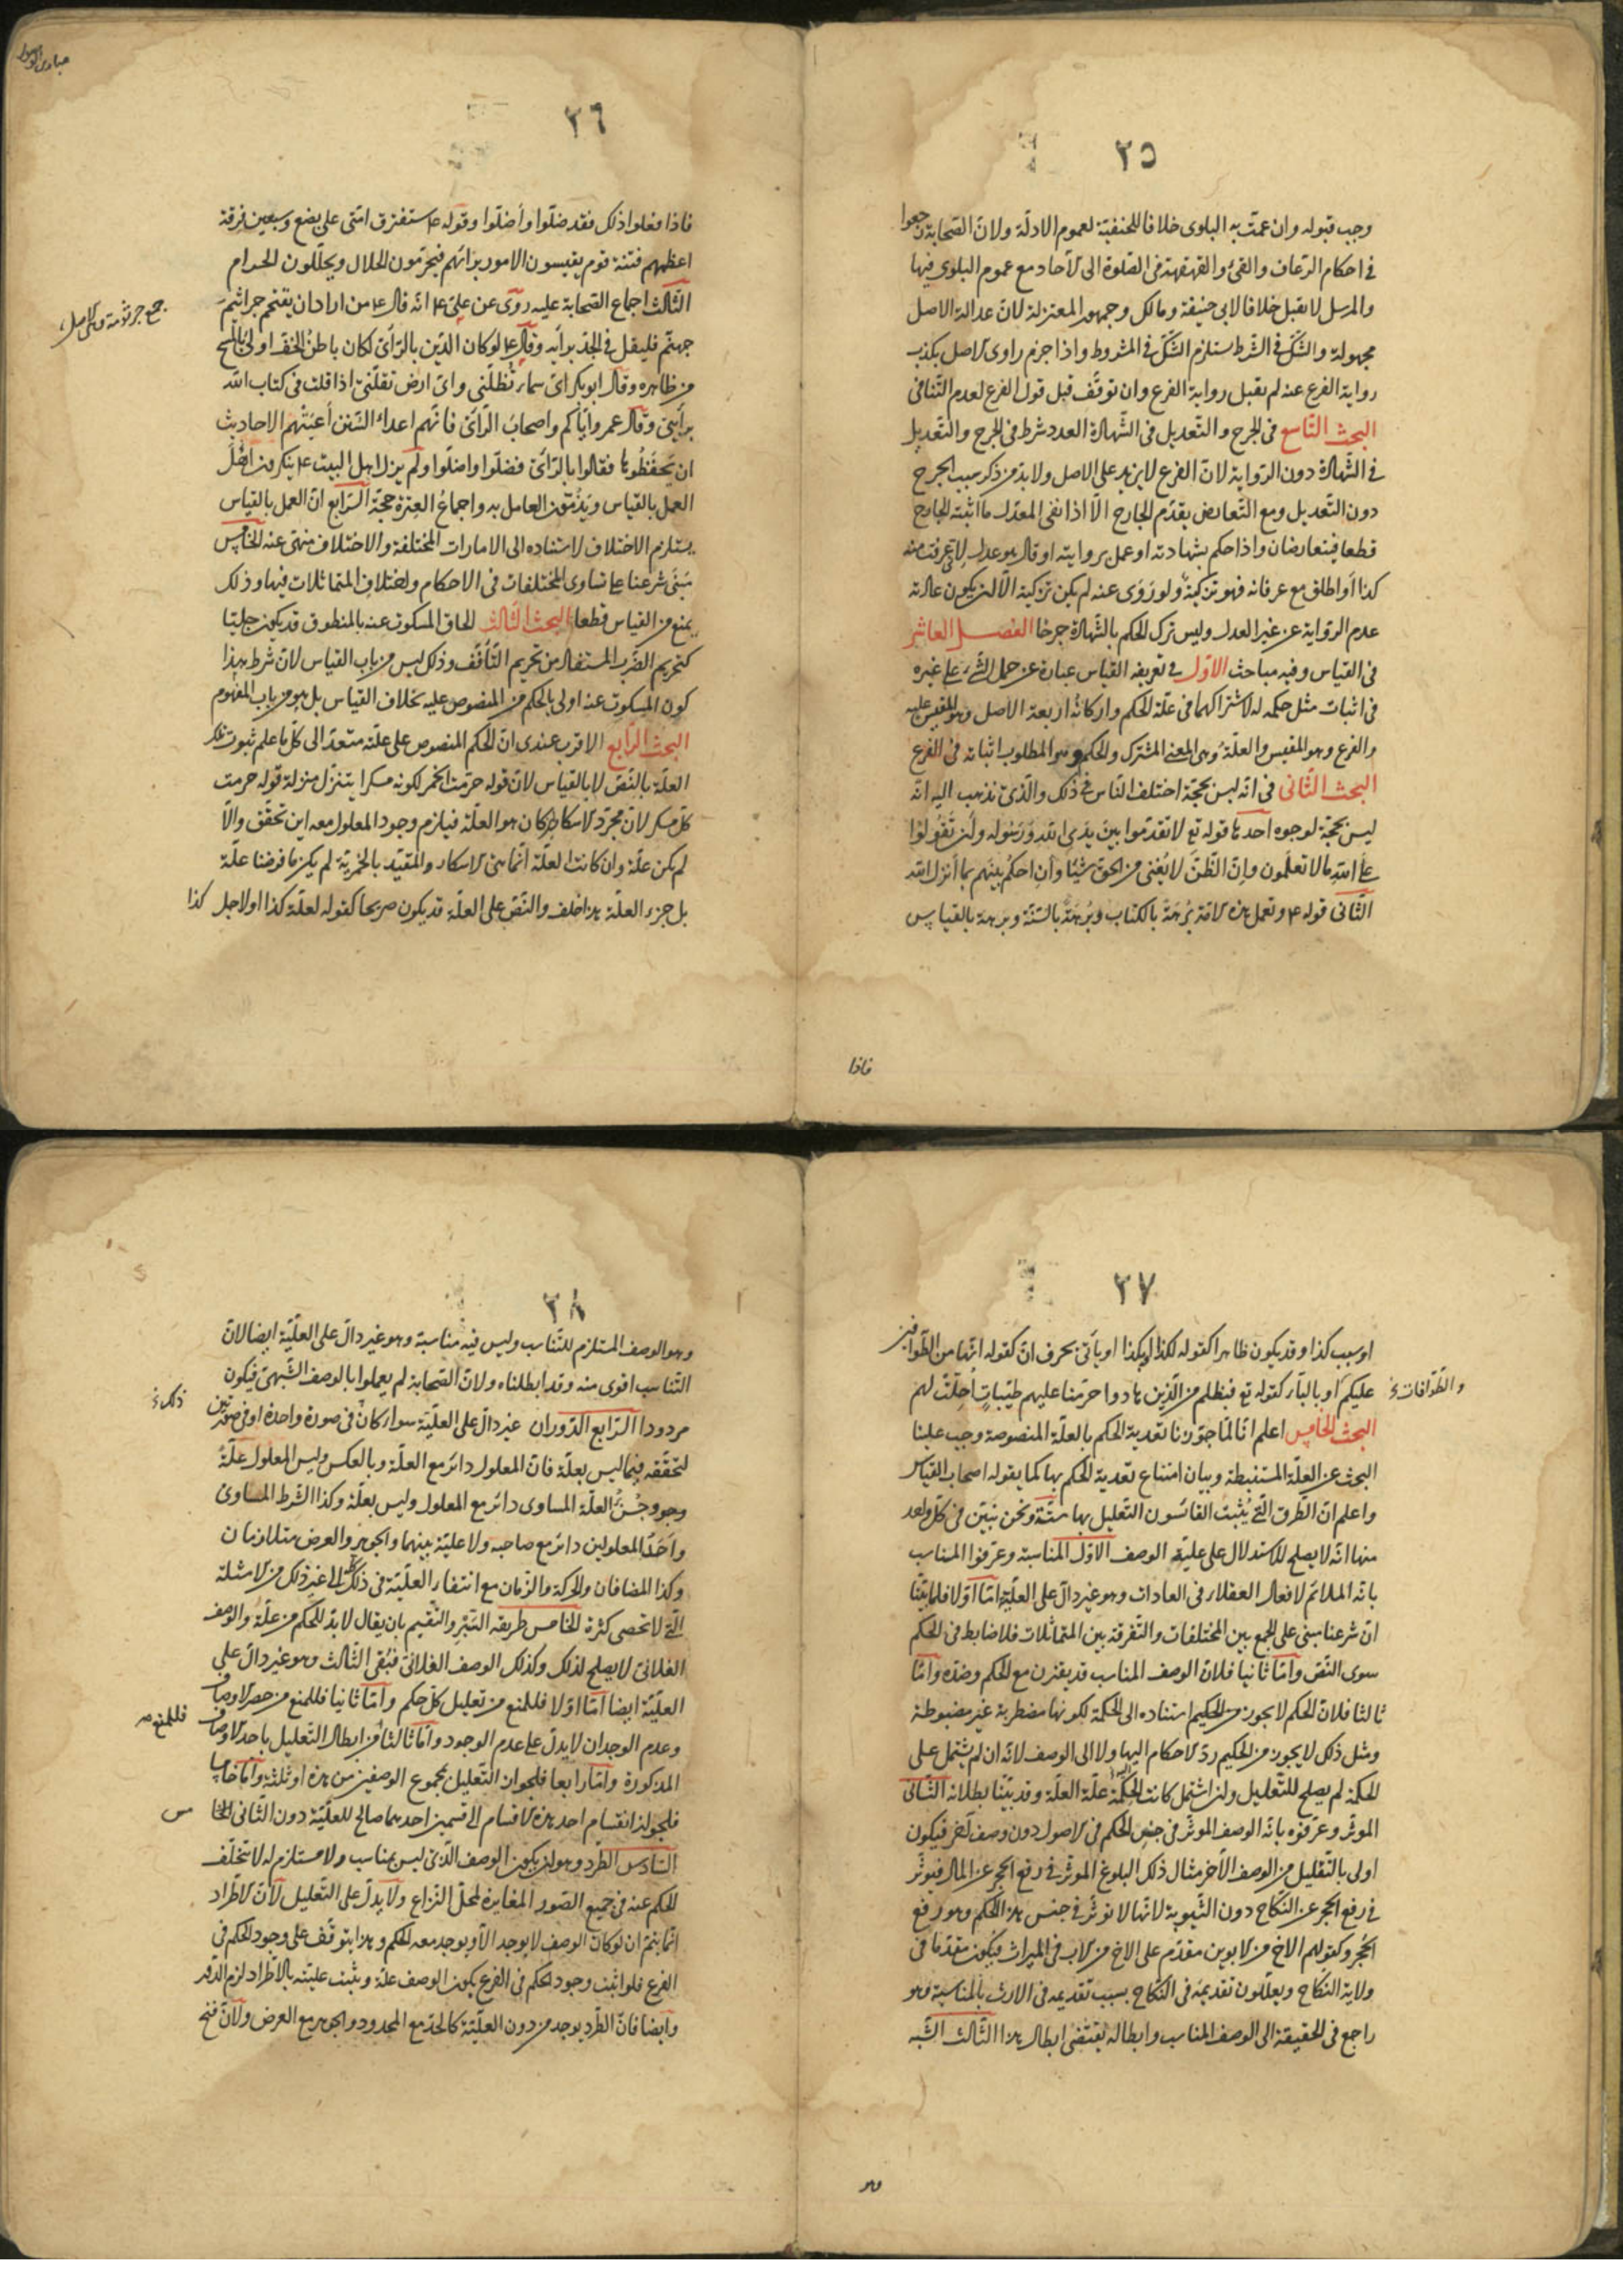 ٢٥
وجب قبوله وان عمت به البلوى خلافا للحنفيّة لعموم الادلّة ولانّ الصّحابة رجعوا
فى احكام الرّعاف والقئ والقهقهة فى الصّلوة الى الآحاد مع عموم البلوى فيها
والمرسل لا يقبل خلافا لابى حنيفة ومالك وجمهور المعتزلة لانّ عدالة الاصل
مجهولة والشّكّ فى الشّرط يستلزم الشّكّ فى المشروط واذا جزم راوى الاصل بكذب
رواية الفرع عنه لم تقبل رواية الفرع وان توقّف قبل قول الفرع لعدم التّنافى
البحث التّاسع فى الجرح والتّعديل فى الشّهادة العدد شرط فى الجرح والتّعديل
فى الشّهادة دون الرّواية لانّ الفرع لا يزيد على الاصل ولا بدّ من ذكر سبب الجرح
دون التّعديل ومع التّعارض يقدّم الجارح الّا اذا نفى المعدّل ما اثبته الجارح
قطعا فيتعارضان واذا حكم بشهادته او عمل بروايته او قال هو عدل لانّى عرفت منه
كذا أو اطلق مع عرفانه فهو تزكية ولو رَوَى عنه لم يكن تزكية الّا ان يكون عادته
عدم الرّواية عن غير العدل وليس ترك الحكم بالشّهادة جرحا الفصل العاشر
فى القياس وفيه مباحث الاوّل فى تعريفه القياس عبارة عن حمل الشّىء على غيره
فى اثبات مثل حكمه له لاشتراكهما فى علّة الحكم واركانُه اربعة الاصل وهو المقيس عليه
والفرع وهو المقيس والعلّة وهى المعنى المشترك والحكم وهو المطلوب اثباته فى الفرع
البحث الثّانى فى انّه ليس بحجّة اختلف النّاس فى ذلك والّذى نذهب اليه انّه
ليس بحجّة لوجوه احدها قوله تع لا تقدّموا بين يدى اللّه ورسوله وان تقولوا
على اللّه ما لا تعلمون وانّ الظّنّ لا يُغنى من الحقّ شيئا وأن احكم بينهم بما أنزل اللّه
الثّانى قوله ع وتعمل هذه الامّة بُرهَةً بالكتاب وبُرهَةً بالسّنّة وبرهة بالقياس
فاذا
٢٦
فاذا فعلوا ذلك فقد ضلّوا وأضلّوا وقوله ع ستفترق امّتى على بضع وسبعين فرقة
اعظمهم فتنة قوم يقيسون الامور برائهم فيحرّمون الحلال ويحلّلون الحرام
الثّالث اجماع الصّحابة عليه روى عن علىّ ع انّه قال ع من اراد ان يقتحم جراثيم
جهنّم فليقل فى الجدّ برأيه وقال ع لو كان الدّين بالرّأى لكان باطنُ الخفّ اولى بالمسح
من ظاهره وقال ابو بكر اىّ سماء تُظلّنى واىّ ارض تقلّنى اذا قلت فى كتاب اللّه
برأيى وقال عمر وايّاكم واصحاب الرّأى فانّهم اعداء السّنن أعيَتْهُم الاحاديث
ان يَحفَظُوها فقالوا بالرّأى فضلّوا واضلّوا ولم يزل اهل البيت ع ينكرون اصل
العمل بالقياس ويذمّون العامل به واجماعُ العترة حجّة الرّابع انّ العمل بالقياس
يستلزم الاختلاف لاستناده الى الامارات المختلفة والاختلاف منهىّ عنه الخامس
مَبنَى شرعنا على تساوى المختلفات فى الاحكام واختلاف المتماثلات فيها وذلك
يمنع من القياس قطعا البحث الثّالث الحاق المسكوت عنه بالمنطوق قد يكون جليّا
كتحريم الضّرب المستفاد من تحريم التّأفّف وذلك ليس من باب القياس لانّ شرط هذا
كون المسكوت عنه اولى بالحكم من المنصوص عليه بخلاف القياس بل هو من باب المفهوم
البحث الرّابع الاقرب عندى انّ الحكم المنصوص على علّته متعدّ الى كلّ ما علم ثبوت تلك
العلّة بالنّصّ لا بالقياس لانّ قوله حرّمت الخمر لكونه مسكرا يتنزّل منزلة قوله حرمت
كلّ مسكر لانّ مجرّد الاسكار ان كان هو العلّة فيلزم وجود المعلول معه اين تحقّق والّا
لم يكن علّة وان كانت العلّة انّما هى الاسكار والمقيّد بالخمريّة لم يكن ما فرضنا علّة
بل جزء العلّة هذا خلف والنّصّ على العلّة قد يكون صريحا كقوله لعلّة كذا او لاجل كذا
جمع جرثومة وهى الاصل
٢٧
او بسبب كذا وقد يكون ظاهرا كقوله لكذا او بكذا او يأتى بحرف انّ كقوله انّها من الطّوّافين
عليكم او بالباء كقوله تع فبظلم من الّذين هادوا حرّمنا عليهم طيّباتٍ اُحِلّت لهم
والطّوّافات
البحث الخامس اعلم انّا لمّا جوّزنا تعدية الحكم بالعلّة المنصوصة وجب علينا
البحث عن العلّة المستنبطة وبيان امتناع تعدية الحكم بها كما يقوله اصحاب القياس
واعلم انّ الطّرق الّتى يُثبت القائسون التّعليل بها ستّة ونحن نبيّن فى كلّ واحد
منها انّه لا يصلح للاستدلال على عليّة الوصف الاوّل المناسبة وعرّفوا المناسب
بانّه الملائم لافعال العقلاء فى العادات وهو غير دالّ على العلّيّة امّا اوّلا فلما بيّنّا
انّ شرعنا مبنى على الجمع بين المختلفات والتّفرقة بين المتماثلات فلا ضابط فى الحكم
سوى النّصّ وامّا ثانيا فلانّ الوصف المناسب قد يقترن مع الحكم وضدّه وامّا
ثالثا فلانّ الحكم لا يجوز من الحكيم استناده الى الحكمة لكونها مضطربة غير مضبوطة
ومثل ذلك لا يجوز من الحكيم ردّ الاحكام اليها ولا الى الوصف لانّه ان لم يشتمل على
الحكمة لم يصلح للتّعليل وان اشتمل كانت الحكمة علّة العلّة وقد بيّنّا بطلانه الثّانى
الموثّر وعرّفوه بانّه الوصف الموثّر فى جنس الحكم فى الاصول دون وصف آخر فيكون
اولى بالتّعليل من الوصف الآخر مثال ذلك البلوغ الموثّر فى رفع الحجر عن المال فيوثّر
فى رفع الحجر عن النّكاح دون الثّيوبة لانّها لا توثّر فى جنس هذا الحكم وهو رفع
الحجر وكقولهم الاخ من الابوين مقدّم على الاخ من الاب فى الميراث فيكون مقدّما فى
ولاية النّكاح ويعلّلون تقديمه فى النّكاح بسبب تقديمه فى الارث بالمناسبة وهو
راجع فى الحقيقة الى الوصف المناسب وابطاله يقتضى ابطال هذا الثّالث الشّبه
وهو
٢٨
وهو الوصف المستلزم للتّناسب وليس فيه مناسبة وهو غير دالّ على العلّيّة ايضا لانّ
التّناسب اقوى منه وقد ابطلناه ولانّ الصّحابة لم يعملوا بالوصف الشّبهىّ فيكون
مردودا الرّابع الدّوران غير دالّ على العلّيّة سواء كان فى صورة واحدة او فى صورتين
لتحقّقه فيما ليس بعلّة فانّ المعلول دائر مع العلّة وبالعكس وليس المعلول علّة
وجزء العلّة المساوى دائر مع المعلول وليس بعلّة وكذا الشّرط المساوى
وأحَدُ المعلولين دائر مع صاحبه ولا علّيّة بينهما والجوهر والعرض متلازمان
وكذا المضافان والحركة والزّمان مع انتفاء العلّيّة فى ذلك الى غير ذلك من الامثلة
الّتى لا تحصى كثرة الخامس طريقة السّبر والتّقسيم بان يقال لا بدّ للحكم من علّة والوصف
الفلانىّ لا يصلح لذلك وكذلك الوصف الفلانىّ فبقى الثّالث وهو غير دالّ على
العلّيّة ايضا امّا اوّلا فللمنع من تعليل كلّ حكم وامّا ثانيا فللمنع من حصر الاوصاف
وعدم الوجدان لا يدلّ على عدم الوجود وامّا ثالثا من ابطال التّعليل باحد الاوصاف
فللمنع
المذكورة وامّا رابعا فلجواز التّعليل بمجموع الوصفين من هذه او ثلثة وامّا خامسا
فلجواز انقسام احد هذه الاقسام الى قسمين احدهما صالح للعلّيّة دون الثّانى
السّادس الطّرد وهو ان يكون الوصف الّذى ليس بمناسب ولا مستلزم له لا يتخلّف
الحكم عنه فى جميع الصّور المغايرة لمحلّ النّزاع ولا يدلّ على التّعليل لانّ الاطّراد
انّما يتمّ ان لو كان الوصف لا يوجد الّا ويوجد معه الحكم وهذا يتوقّف على وجود الحكم فى
الفرع فلو اثبت وجود الحكم فى الفرع بكون الوصف علّة ويثبت علّيّته بالاطّراد لزم الدّور
وايضا فانّ الطّرد يوجد من دون العلّيّة كالحدّ مع المحدود والجوهر مع العرض ولانّ فتح